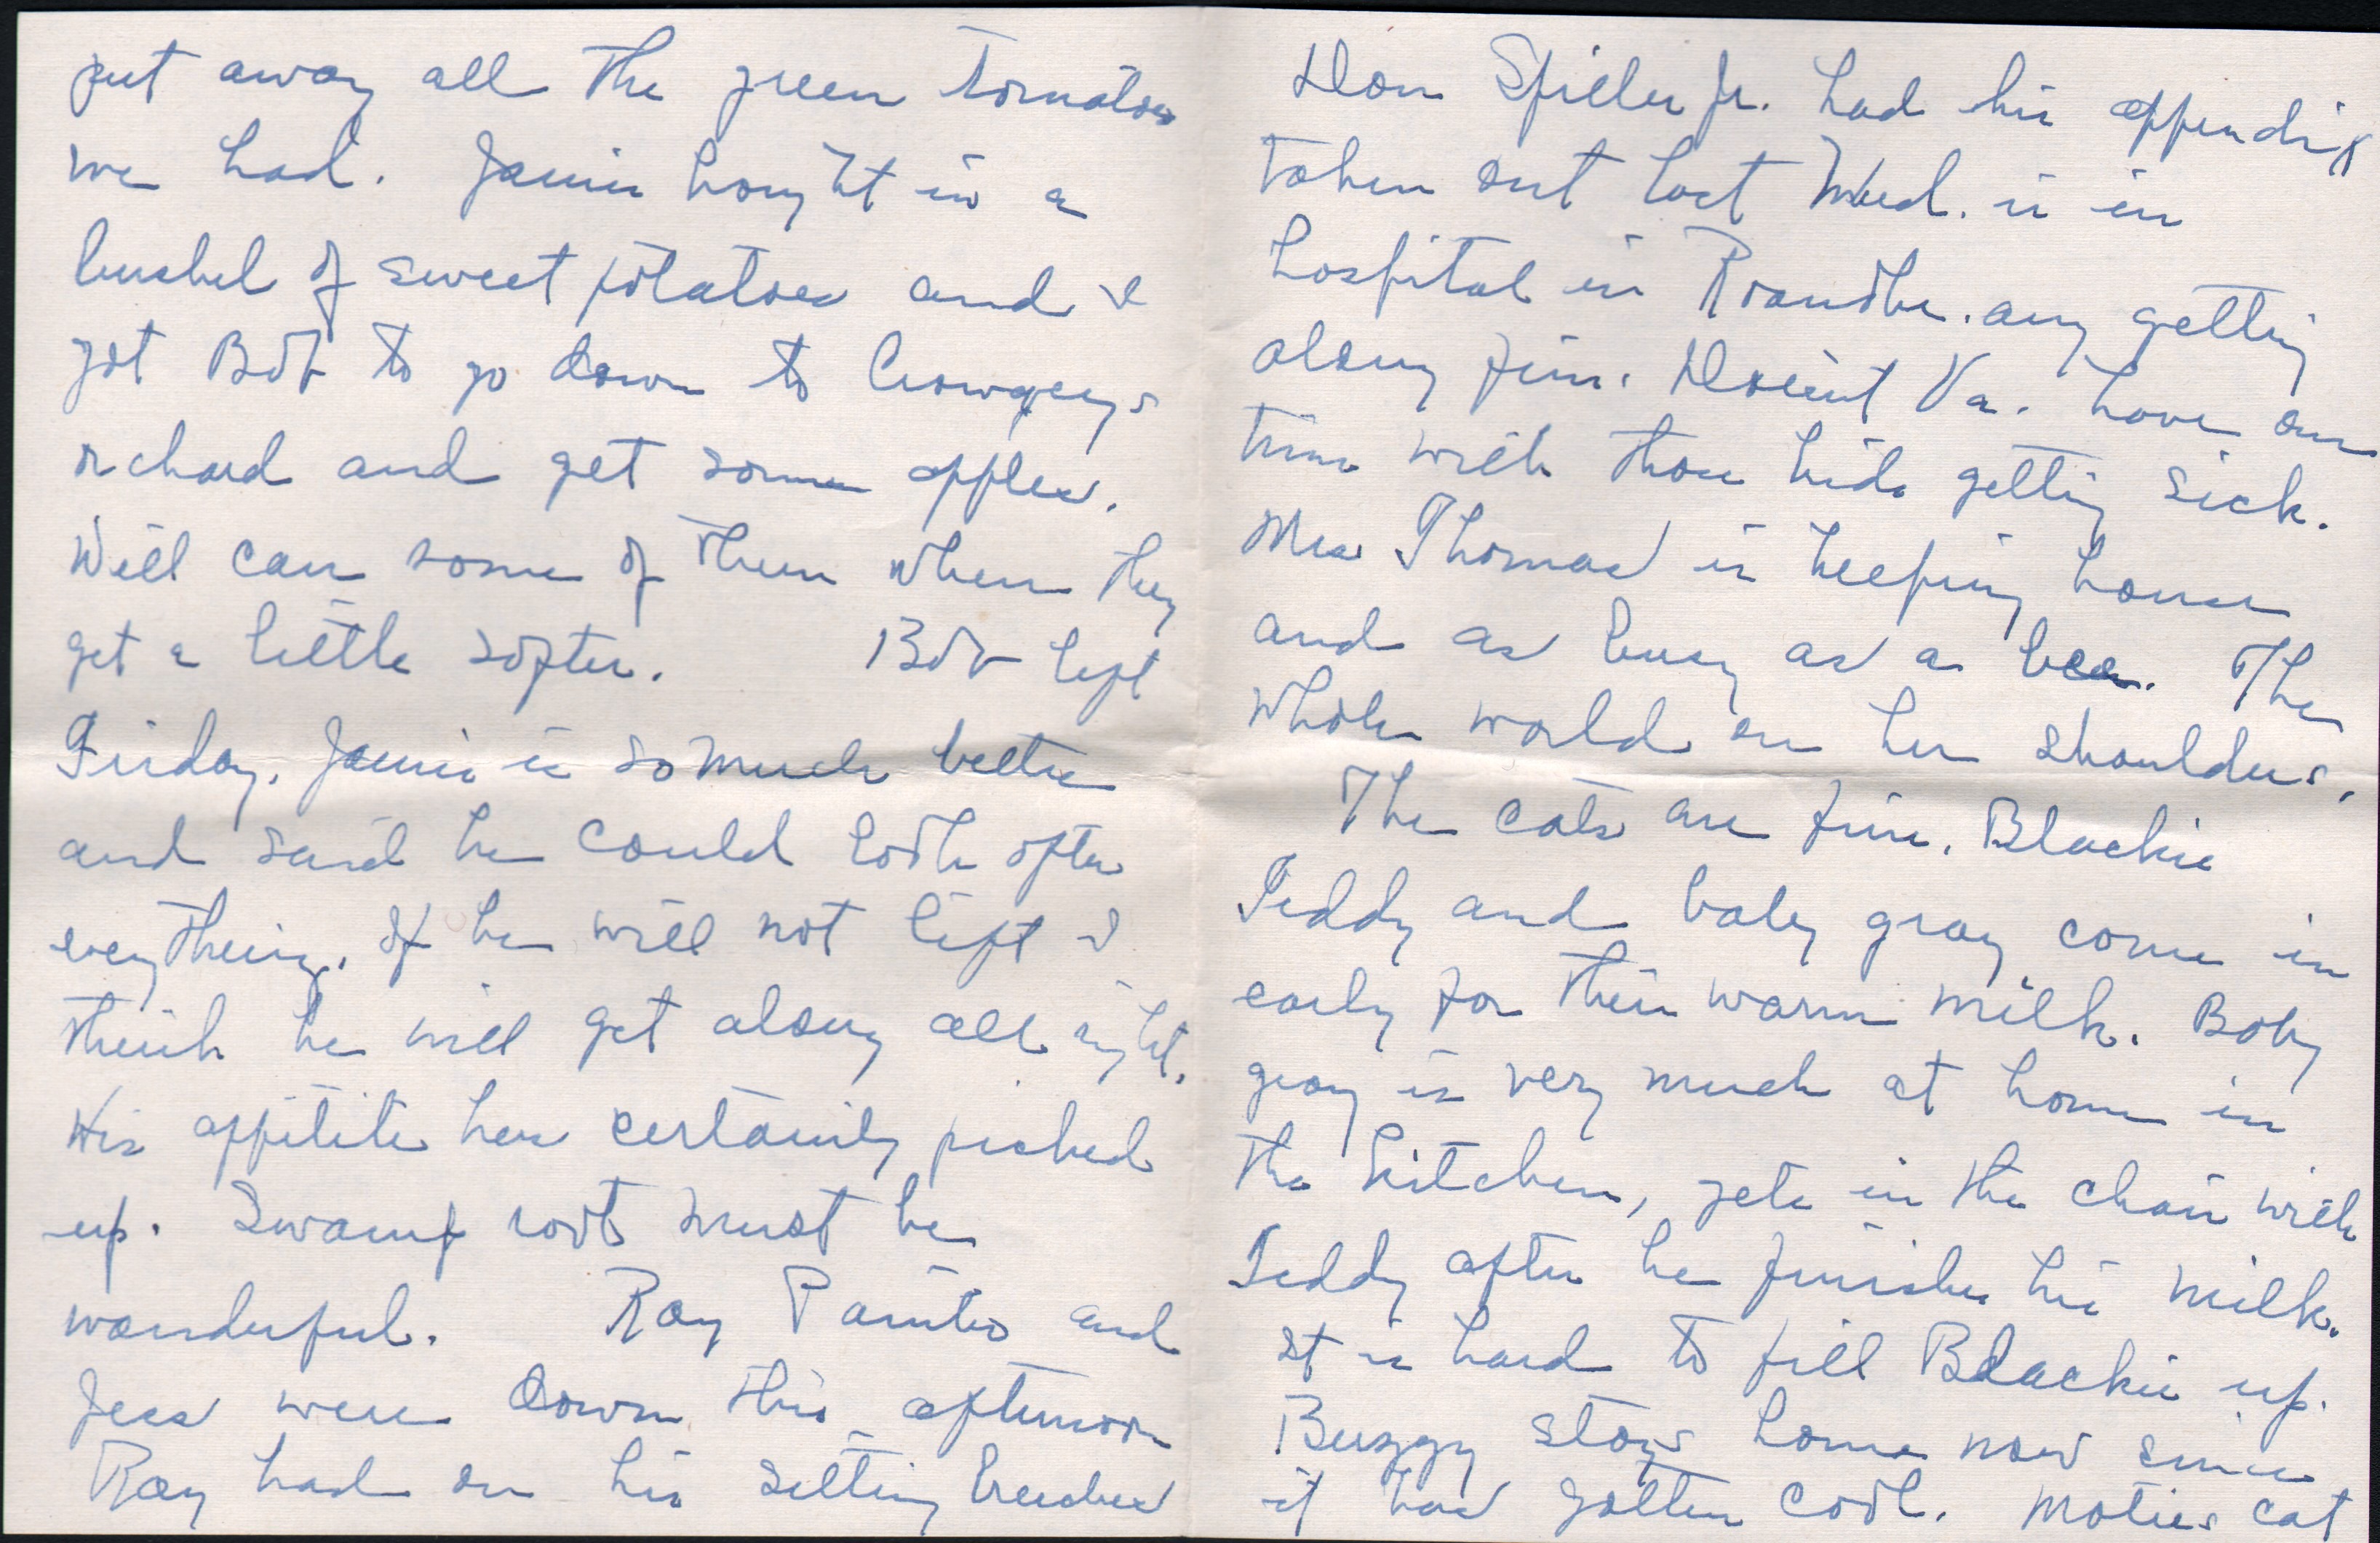 put away all the green tomatoes
we had. Jamie bought in a
bushel of sweet potatoes and I
got Bob to go down to Crowgeys
orchard and get some apples.
Will can some of them when they
get a little softer. Bob left
Friday. Jamie is so much better
and said he could look after
everything. If he will not lift I
think he will get along all right.
His appitite has certainly picked
up. Swamp root must be
wonderful. Ray Painter and
Jess were down this afternoon
Ray had on his setting breeches
Don Spiller Jr. had his appendix
taken out last Wed. is in
hospital in Roanoke. any getting
along fine. Doesint Va. have one
time with those kids getting sick.
Mrs Thomas is keeping house
and as busy as a bee. The
whole world on her shoulders.
The cats are fine. Blackie
Teddy and baby gray come in
early for their warm milk. Baby
gray is very much at home in
the kitchen, gets in the chair with
Teddy after he finishes his milk.
It is hard to fill Blackie up.
Buzzy stays home now since
it has gotten cool. cat